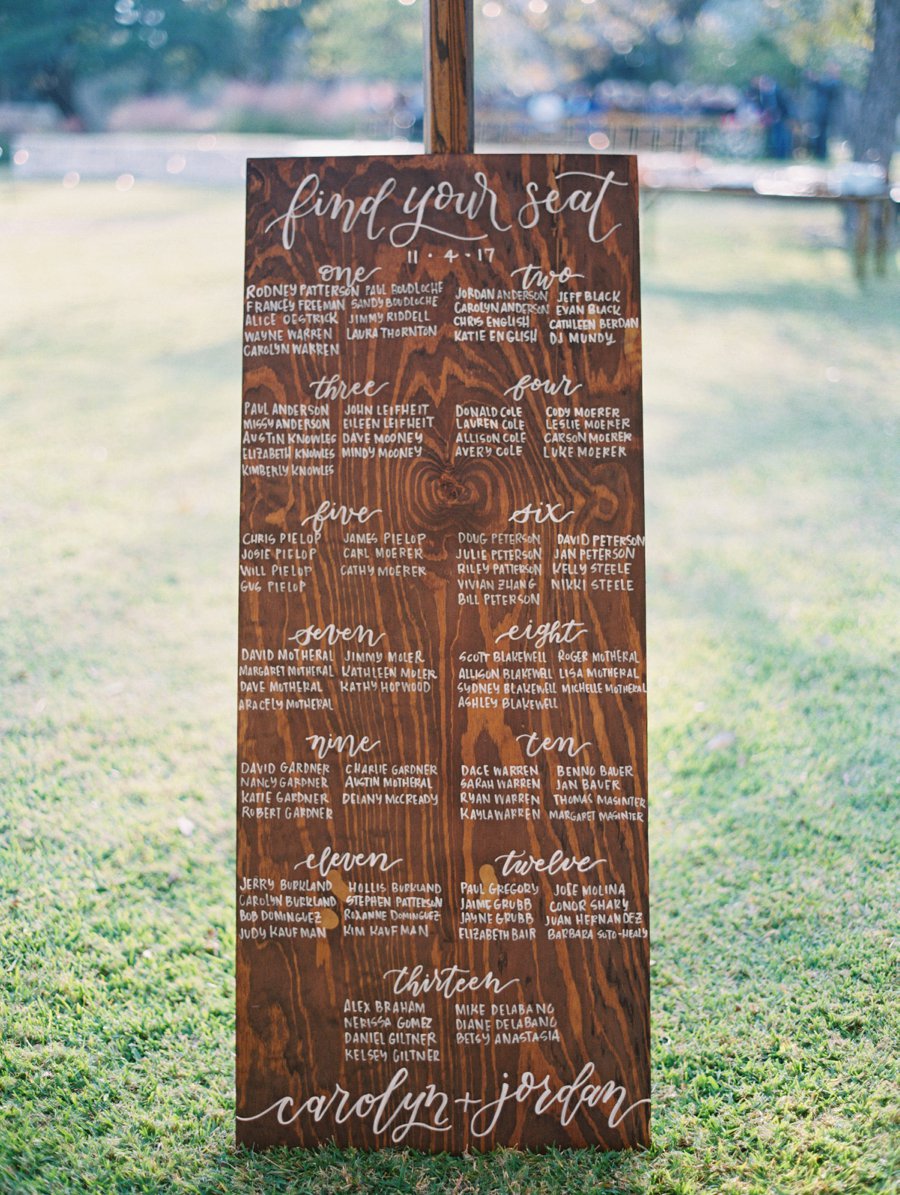 find your seat
11 · 4 · 17
one
RODNEY PATTERSON PAUL BOUDLOCHE
FRANCEY FREEMAN SANDY BOUDLOCHE
ALICE OESTRICK JIMMY RIDDELL
WAYNE WARREN LAURA THORNTON
CAROLYN WARREN
two
JORDAN ANDERSON JEFF BLACK
CAROLYN ANDERSON EVAN BLACK
CHRIS ENGLISH CATHLEEN BERDAN
KATIE ENGLISH DJ MUNDY
three
PAUL ANDERSON JOHN LEIFHEIT
MISSY ANDERSON EILEEN LEIFHEIT
AUSTIN KNOWLES DAVE MOONEY
ELIZABETH KNOWLES MINDY MOONEY
KIMBERLY KNOWLES
four
DONALD COLE CODY MOERER
LAUREN COLE LESLIE MOERER
ALLISON COLE CARSON MOERER
AVERY COLE LUKE MOERER
five
CHRIS PIELOP JAMES PIELOP
JOSIE PIELOP CARL MOERER
WILL PIELOP CATHY MOERER
GUS PIELOP
six
DOUG PETERSON DAVID PETERSON
JULIE PETERSON JAN PETERSON
RILEY PATTERSON KELLY STEELE
VIVIAN ZHANG NIKKI STEELE
BILL PETERSON
seven
DAVID MOTHERAL JIMMY MOLER
MARGARET MOTHERAL KATHLEEN MOLER
DAVE MOTHERAL KATHY HOPWOOD
ARACELY MOTHERAL
eight
SCOTT BLAKEWELL ROGER MOTHERAL
ALLISON BLAKEWELL LISA MOTHERAL
SYDNEY BLAKEWELL MICHELLE MOTHERAL
ASHLEY BLAKEWELL
nine
DAVID GARDNER CHARLIE GARDNER
NANCY GARDNER AUSTIN MOTHERAL
KATIE GARDNER DELANY MCCREADY
ROBERT GARDNER
ten
DACE WARREN BENNO BAUER
SARAH WARREN JAN BAUER
RYAN WARREN THOMAS MASINTER
KAYLA WARREN MARGARET MASINTER
eleven
JERRY BURKLAND HOLLIS BURKLAND
CAROLYN BURKLAND STEPHEN PATTERSON
BOB DOMINGUEZ ROXANNE DOMINGUEZ
JUDY KAUFMAN KIM KAUFMAN
twelve
PAUL GREGORY JOSE MOLINA
JAIME GRUBB CONOR SHARY
JAYNE GRUBB JUAN HERNANDEZ
ELIZABETH BAIR BARBARA SOTO-HEALY
thirteen
ALEX BRAHAM MIKE DELABANO
NERISSA GOMEZ DIANE DELABANO
DANIEL GILTNER BETSY ANASTASIA
KELSEY GILTNER
carolyn + jordan